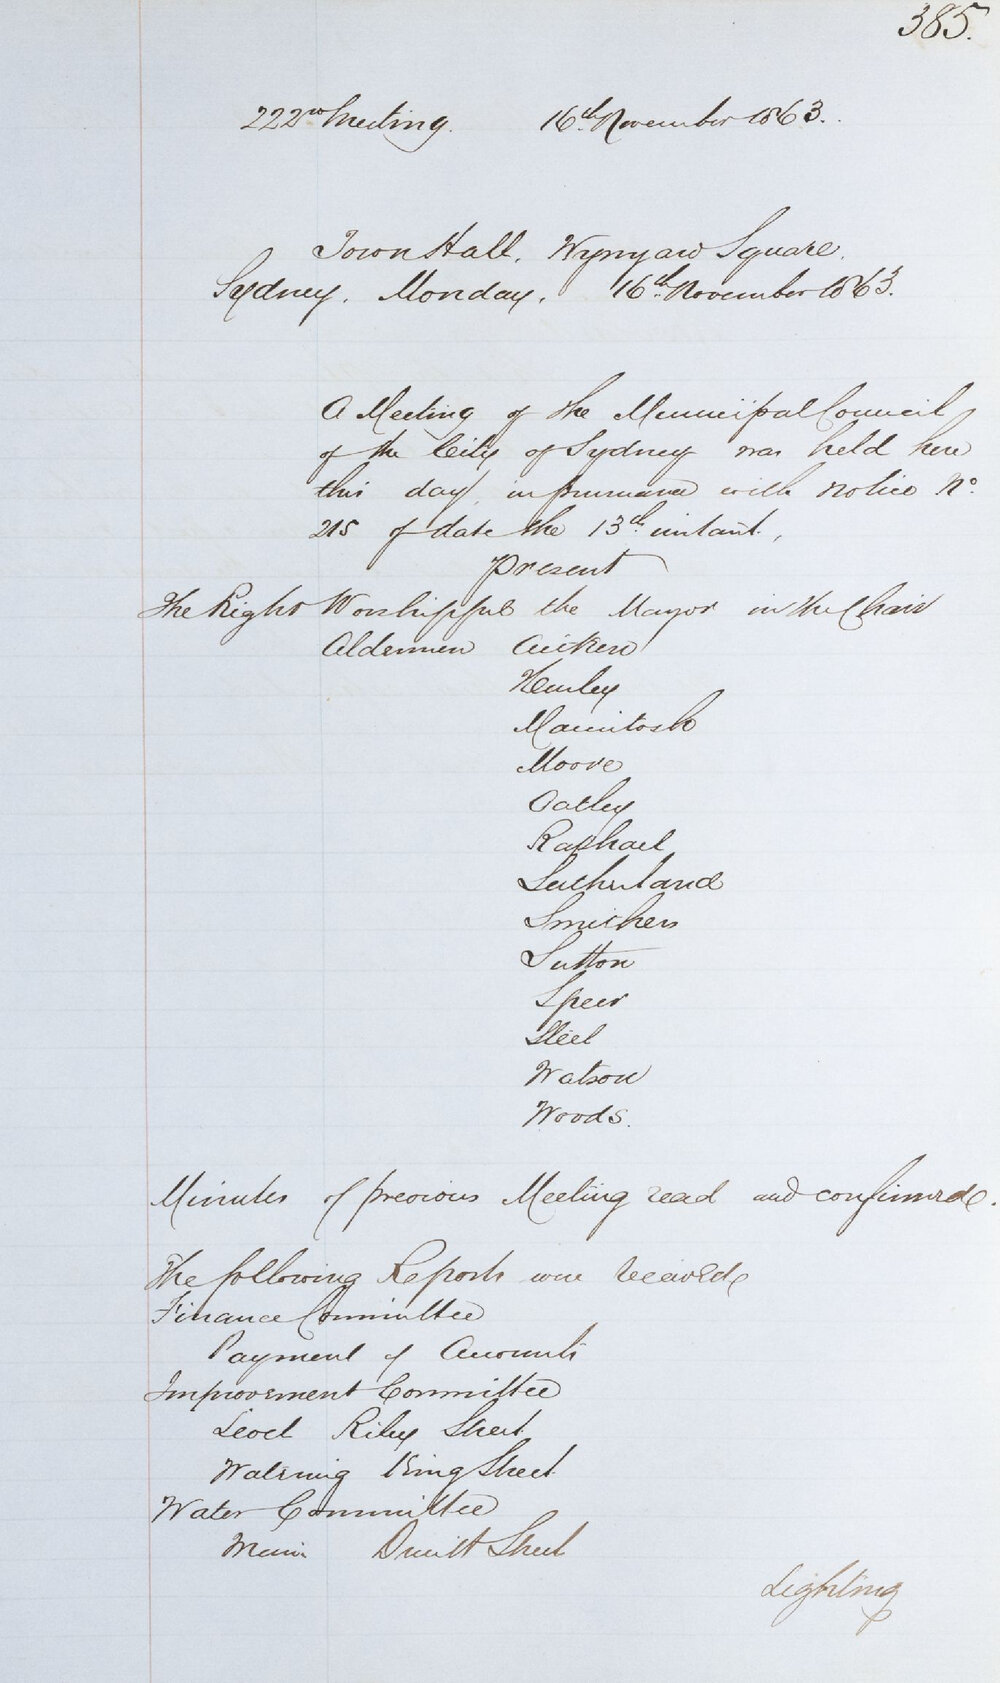 385.
222nd Meeting. 16th November 1863.
Town Hall. Wynyard Square.
Sydney. Monday. 16th November 1863.
A Meeting of the Municipal Council
of the City of Sydney was held here
this day, in pursuance with notice No.
215 of date the 13th instant.,
Present
The Right Worshipful the Mayor in the Chair
Aldermen Aitken
Hurley
Macintosh
Moore
Oatley
Raphael
Sutherland
Smithers
Sutton
Speer
Steel
Watson
Woods.
Minutes of previous Meeting read and confirmed.
The following Reports were received
Finance Committee
Payment of Accounts
Improvement Committee
Level Riley Street
Watering King Street
Water Committee
Main Druitt Street
Lighting